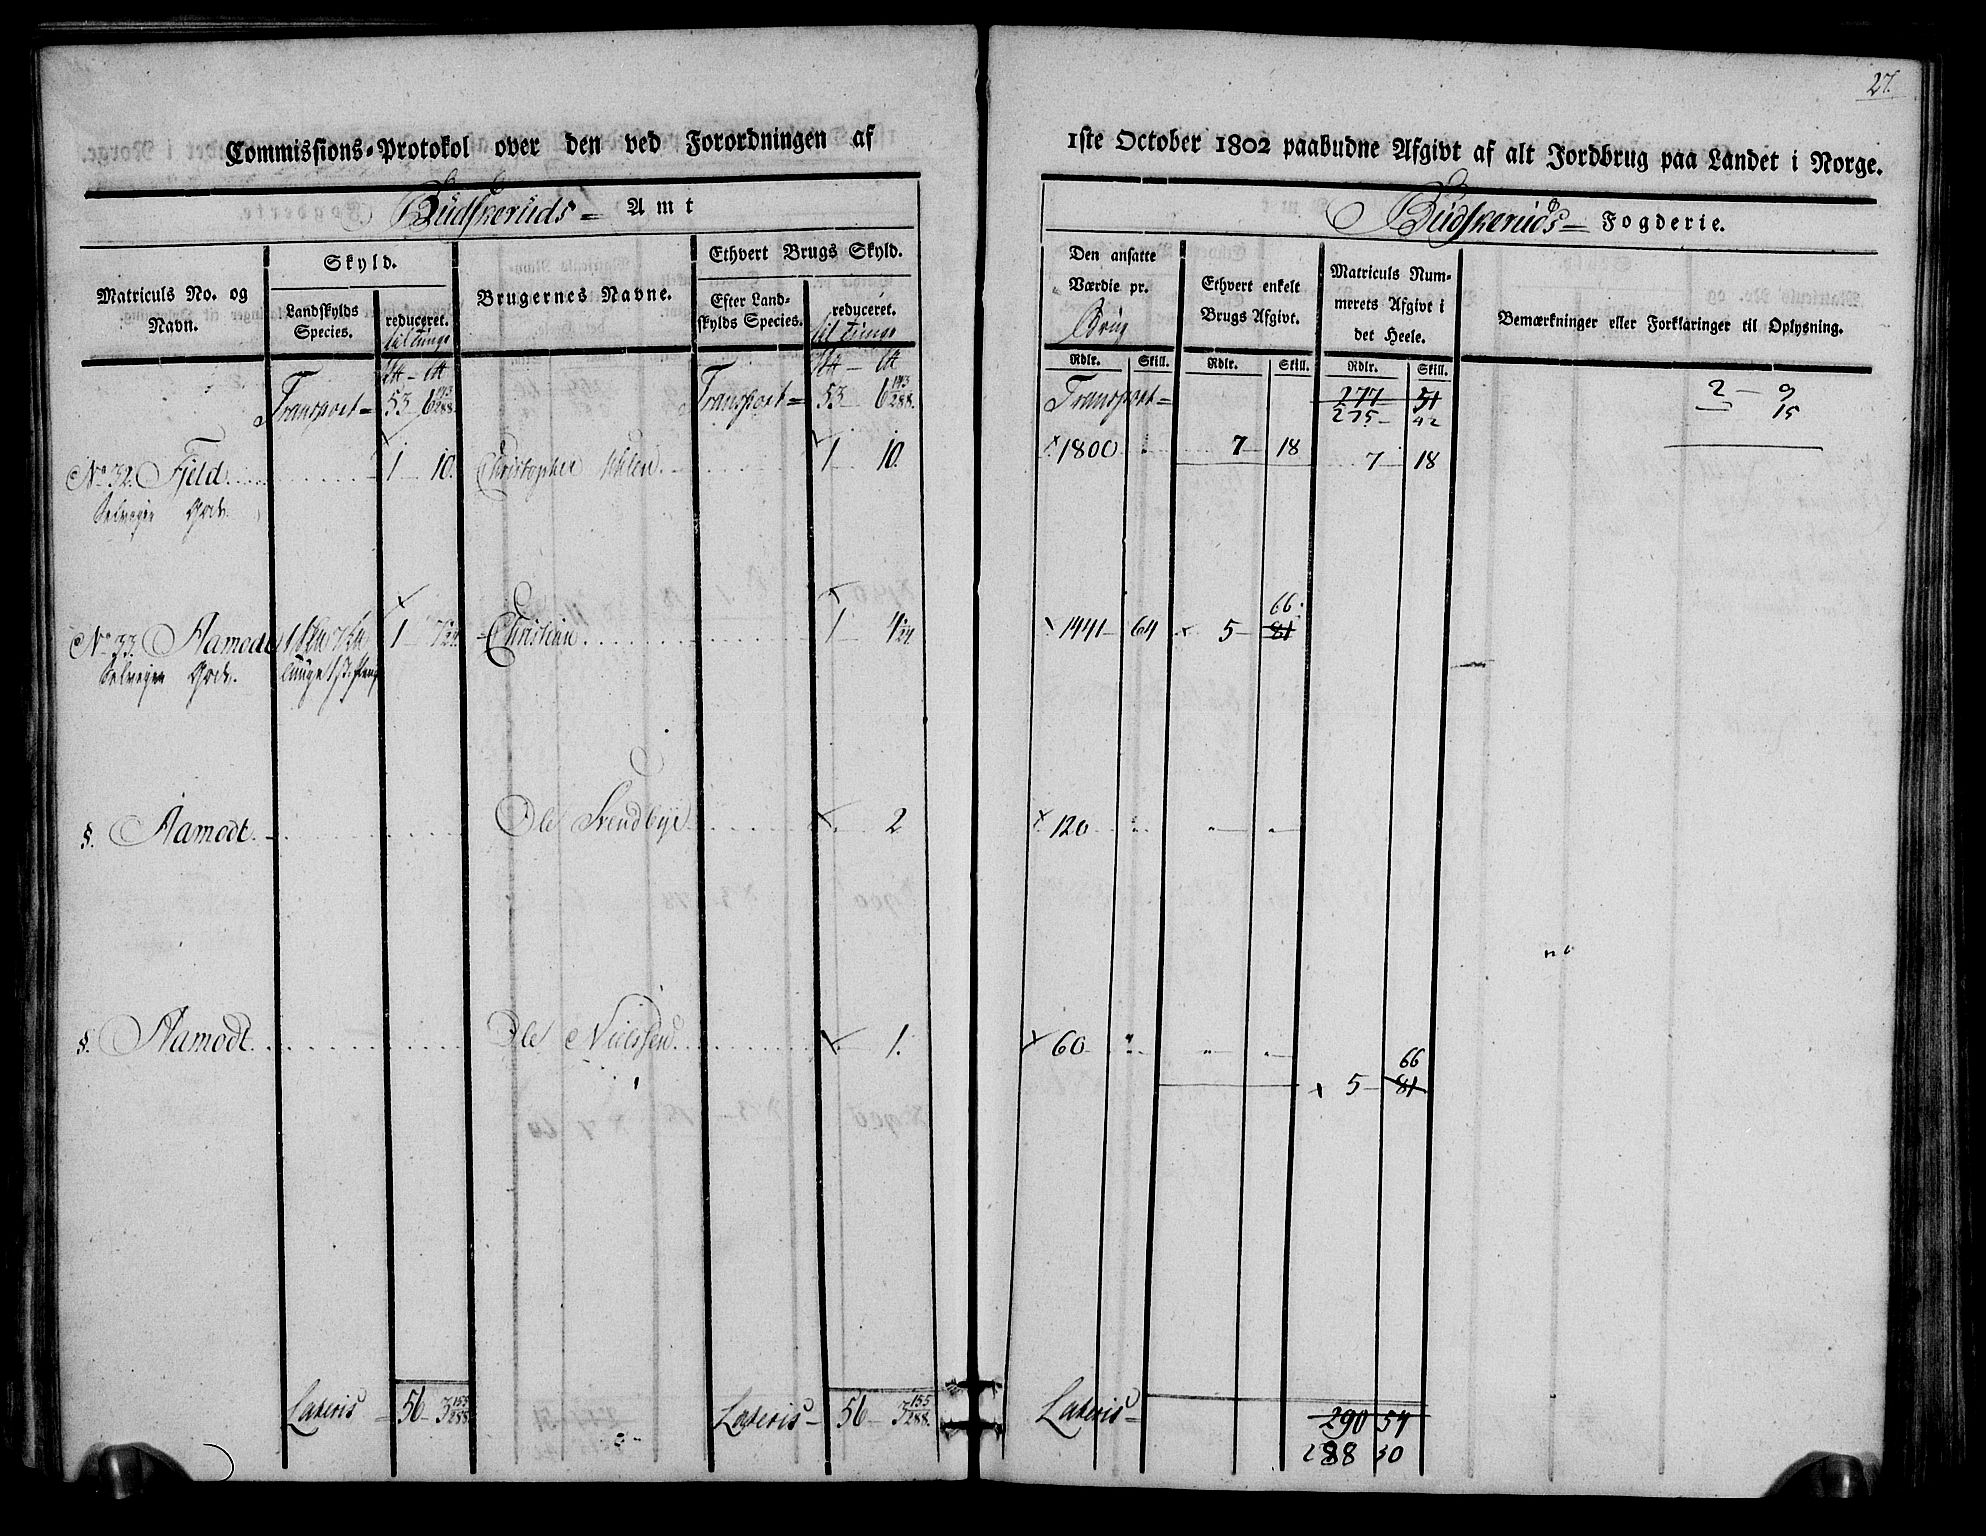 27.
Commissions-Protokol over den ved Forordningen af 1ste October 1802 paabudne Afgivt af alt Jordbrug paa Landet i Norge.
Budskeruds Amt
Budskeruds Fogderie.
Matriculs No. og Navn.
Skyld.
Landskylds Species.
reduceret.
til Tunge
Brugernes Navne.
Ethvert Brugs Skyld.
Efter Landskylds Species.
reduceret.
til Tunge
Den ansatte Værdie pr.
Rdlr. Skill.
Ethvert enkelt Brugs Afgivt.
Rdlr. Skill.
Matriculs Nummerets Afgivt i det Heele.
Rdlr. Skill.
Bemærkninger eller Forklaringer til Oplysning.
Transport= 53 6 143/288. Transport= 53 6 143/288. Transport= 277 51 2 — 9
275 42 15
No 32. Fjeld 1 10. Christopher 1 10. 1800 7 18 7 18
Selveyer Grd.
No 33. Aamodt 1 Christian 1 4 1441 64 5 81 66
Selveyer Grd.
§. Aamodt. Ole 2 120
§. Aamodt. Ole Nielssen 1. 60
5 81 66
Lateris 56 3 155/288. Lateris 56 3 155/288. Lateris 290 54
288 30